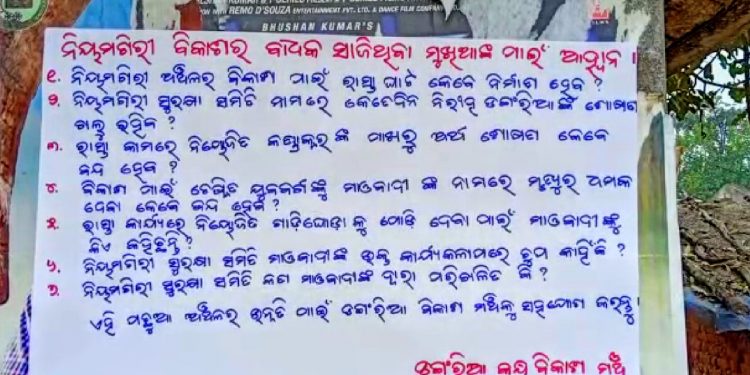 REMO D'SOUZA ENTERTAINMENT PVT. LTD. & DANCE FILM
BHUSHAN KUMAR'S
ନିୟମଗିରୀ ବିକାଶର ବାଧକ ସାଜିଥିବା ମୁଖିଆଙ୍କ ପାଇଁ ଆହ୍ୱାନ ।
୧. ନିୟମଗିରୀ ଅଞ୍ଚଳର ବିକାଶ ପାଇଁ ରାସ୍ତା ଘାଟ କେବେ ନିର୍ମାଣ ହେବ ?
୨. ନିୟମଗିରୀ ସୁରକ୍ଷା ସମିତି ନାମରେ କେତେଦିନ ନିରୀହ ଡଙ୍ଗରିଆଙ୍କ ଶୋଷଣ
ଚାଲୁ ରହିବ ?
୩. ରାସ୍ତା କାମରେ ନିୟୋଜିତ କଣ୍ଟ୍ରାକ୍ଟରଙ୍କ ପାଖରୁ ଅର୍ଥ ଶୋଷଣ କେବେ
ବନ୍ଦ ହେବ ?
୪. ବିକାଶ ପାଇଁ ଚେଷ୍ଟିତ ଯୁବକବର୍ଗଙ୍କୁ ମାଓବାଦୀ ଙ୍କ ନାମରେ ମୃତ୍ୟୁର ଧମକ
ଦେବା କେବେ ବନ୍ଦ ହେବ ?
୫. ରାସ୍ତା କାର୍ଯ୍ୟରେ ନିୟୋଜିତ ଗାଡ଼ିଘୋଡ଼ା କୁ ପୋଡ଼ି ଦେବା ପାଇଁ ମାଓବାଦୀଙ୍କୁ
କିଏ କହିଛନ୍ତି ?
୬. ନିୟମଗିରୀ ସୁରକ୍ଷା ସମିତି ମାଓବାଦୀଙ୍କ ଉକ୍ତ କାର୍ଯ୍ୟକଳାପରେ ଚୁପ କାହିଁକି ?
୭. ନିୟମଗିରୀ ସୁରକ୍ଷା ସମିତି କଣ ମାଓବାଦୀଙ୍କ ଦ୍ୱାରା ପରିଚାଳିତ କି ?
ଏହି ପଛୁଆ ଅଞ୍ଚଳର ଉନ୍ନତି ପାଇଁ ଡଙ୍ଗରିଆ ବିକାଶ ମଞ୍ଚକୁ ସହଯୋଗ କରନ୍ତୁ ।
ଡଙ୍ଗରିଆ କନ୍ଧ ବିକାଶ ମଞ୍ଚ